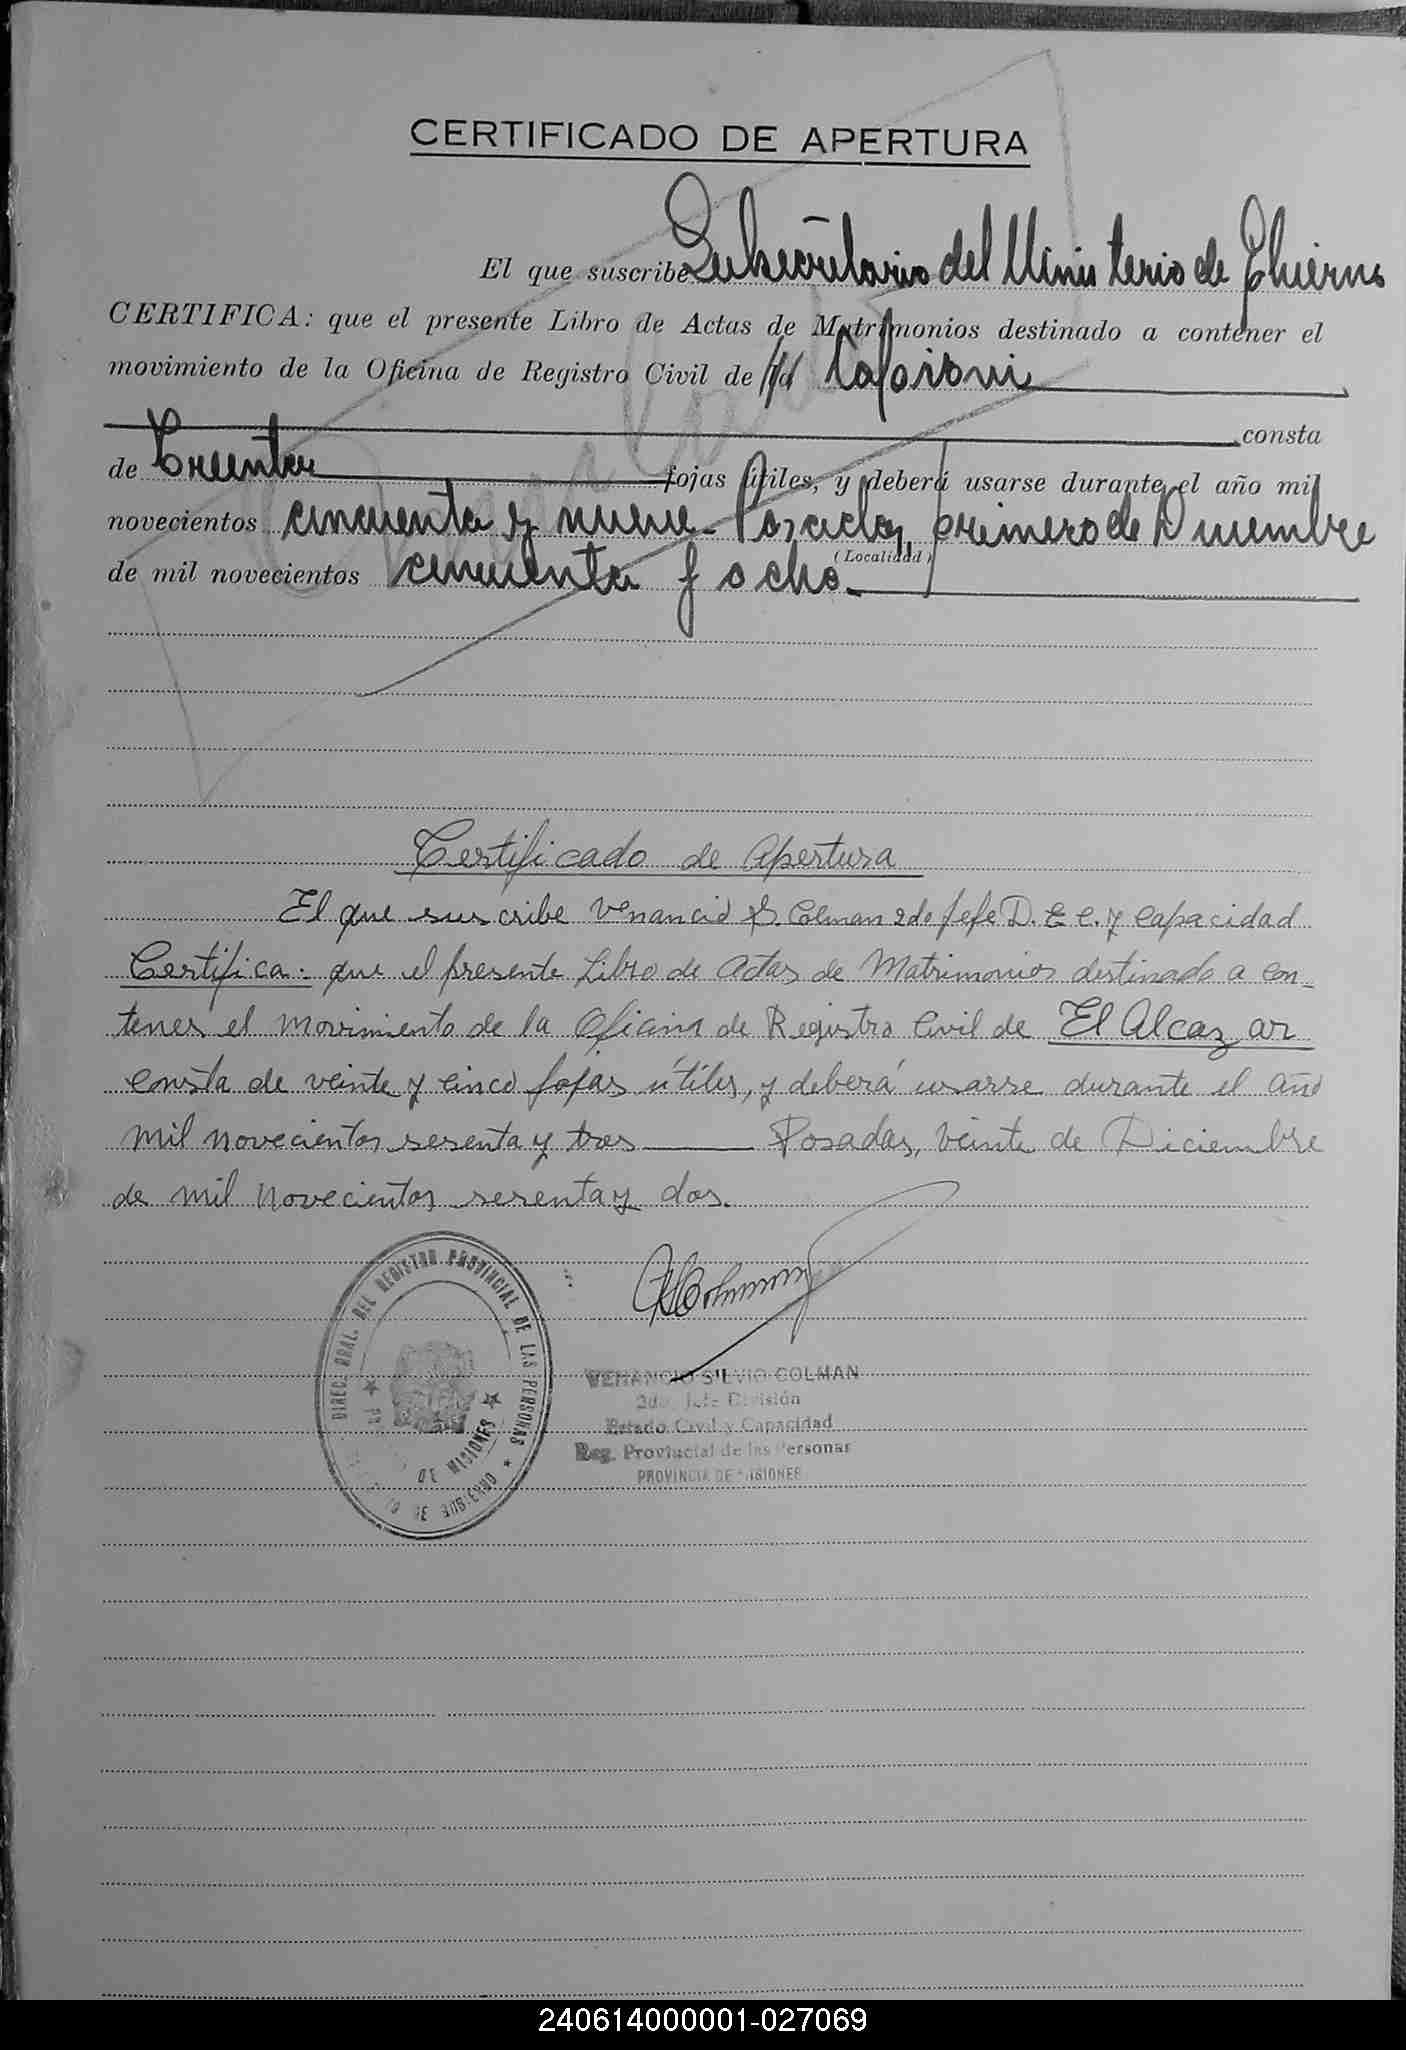 CERTIFICADO DE APERTURA
El que suscribe Subsecretario del Ministerio de Gobierno
CERTIFICA: que el presente Libro de Actas de Matrimonios destinado a contener el
movimiento de la Oficina de Registro Civil de
consta
de Treinta fojas útiles, y deberá usarse durante el año mil
novecientos cincuenta y nueve - Posadas, primero de Diciembre
(Localidad)
de mil novecientos cincuenta y ocho.
Certificado de Apertura
El que suscribe Venancio S. Colman 2do Jefe D. E. C. y Capacidad
Certifica: que el presente Libro de Actas de Matrimonios destinado a con-
tener el movimiento de la Oficina de Registro Civil de El Alcazar
consta de veinte y cinco fojas útiles, y deberá usarse durante el año
mil novecientos sesenta y tres Posadas, veinte de Diciembre
de mil novecientos sesenta y dos.
DIREC. GRAL. DEL REGISTRO PROVINCIAL DE LAS PERSONAS
DE MISIONES
VENANCIO SILVIO COLMAN
2do. Jefe División
Estado Civil y Capacidad
Reg. Provincial de las Personas
PROVINCIA DE MISIONES
240614000001-027069